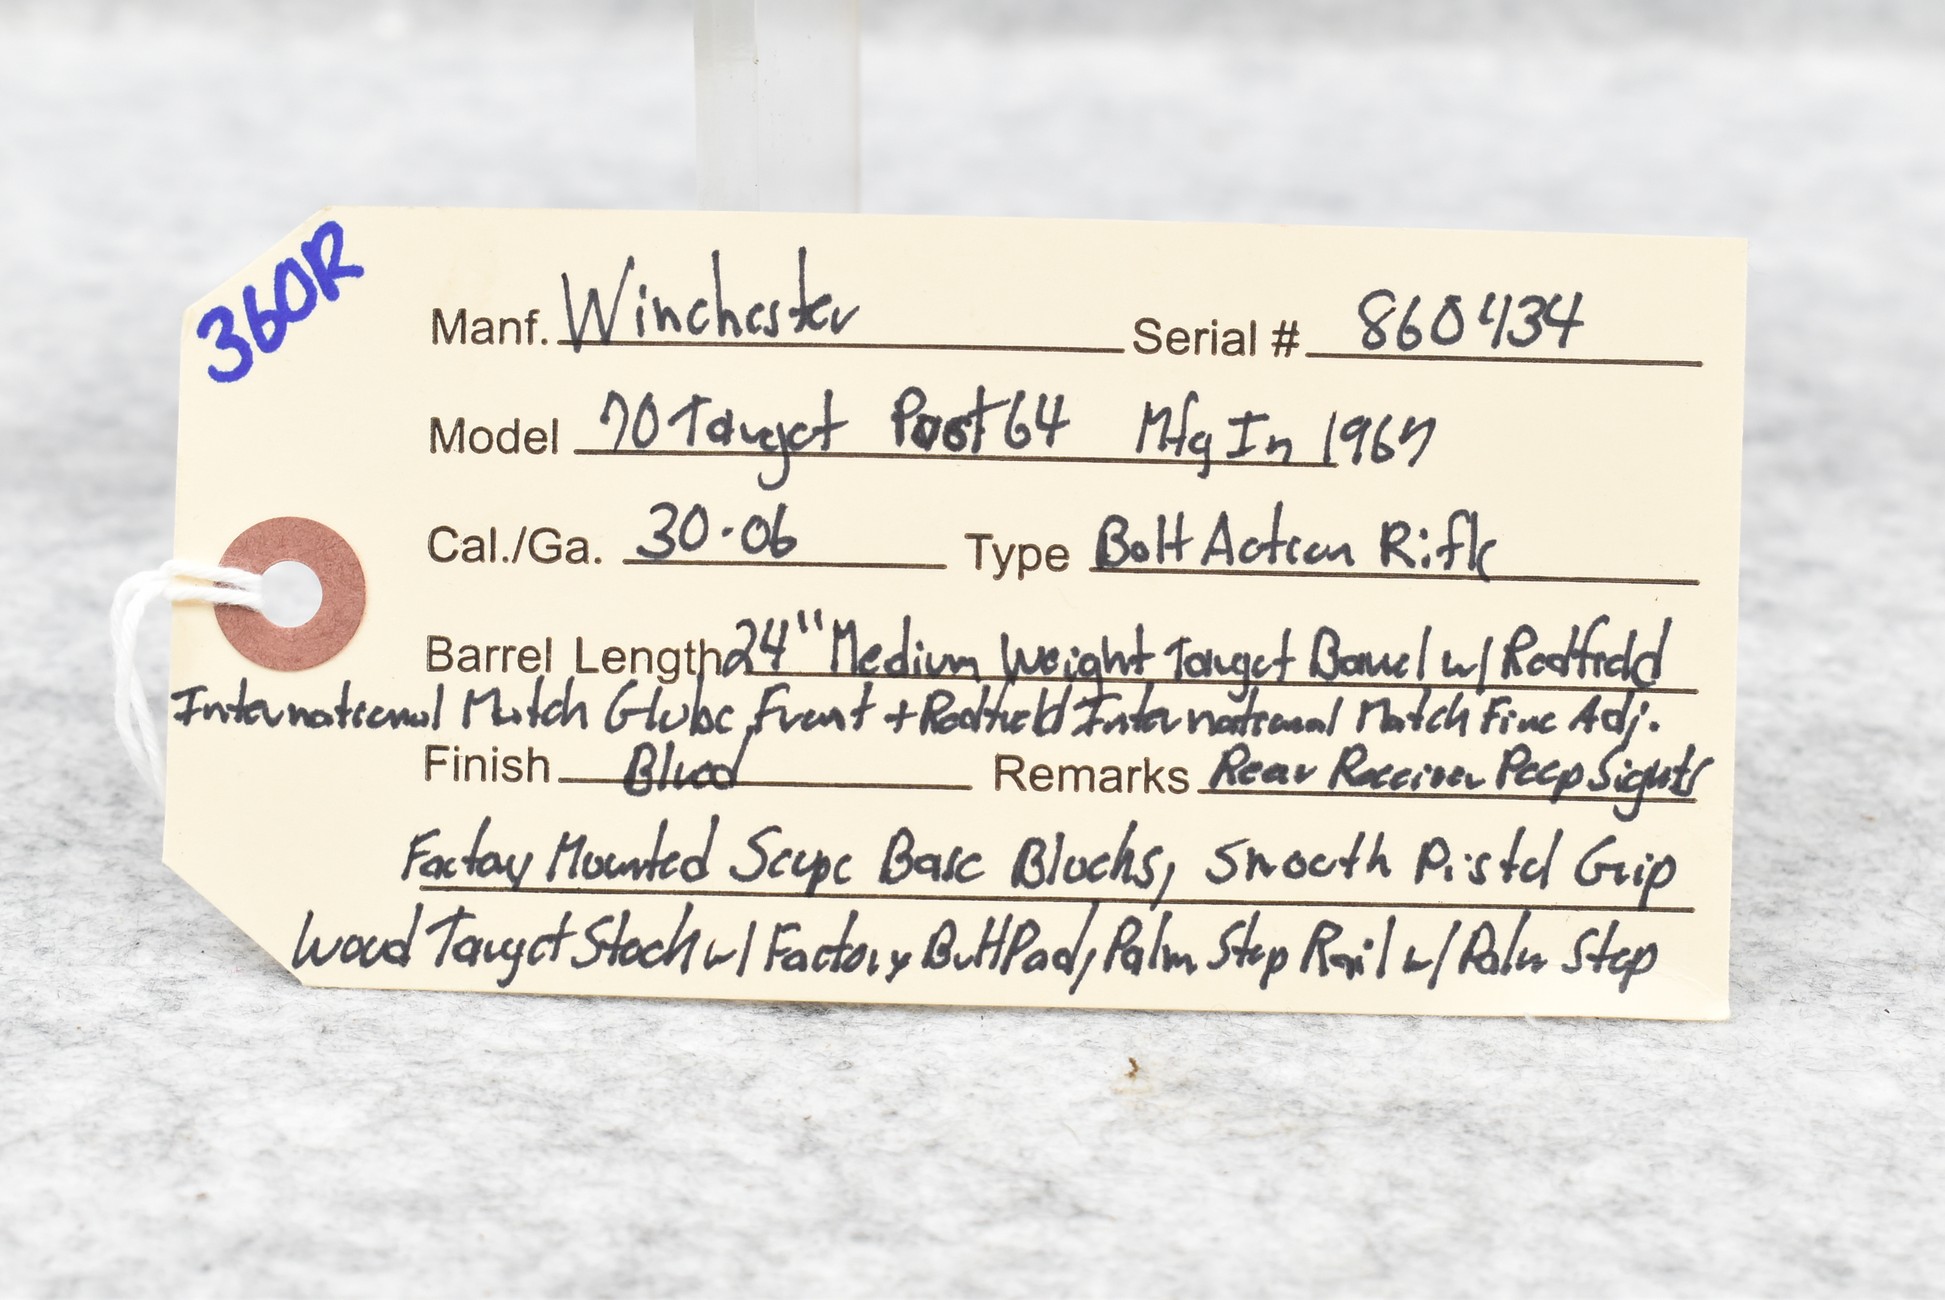 360R
Manf. Winchester Serial # 860434
Model 70 Target Post 64 Mfg In 1967
Cal./Ga. 30-06 Type Bolt Action Rifle
Barrel Length 24" Medium Weight Target Barrel w/ Redfield
International Match Globe Front + Redfield International Match Fine Adj.
Finish Blued Remarks Rear Receiver Peep Sights
Factory Mounted Scope Base Blocks, Smooth Pistol Grip
Wood Target Stock w/ Factory Butt Pad, Palm Stop Rail w/ Palm Stop